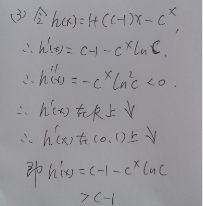 (3) 令h(x)=1+(c-1)x-c^x,
∴h'(x)=c-1-c^x ln c.
∴h''(x)=-c^x ln²c<0.
∴h'(x)在R上↓
∴h'(x)在(0,1)上↓
即h'(x)=c-1-c^x ln c
>c-1